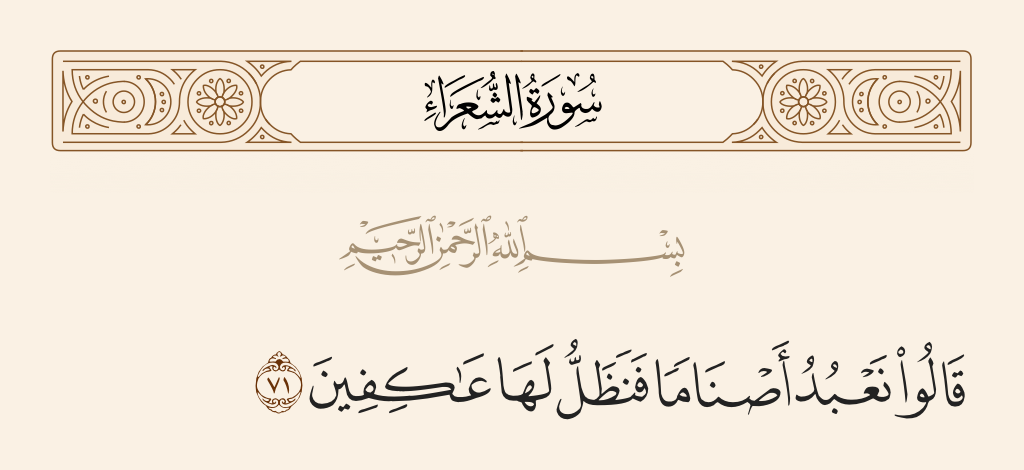 سُورَةُ الشُّعَرَاءِ
بِسْمِ ٱللَّهِ ٱلرَّحْمَٰنِ ٱلرَّحِيمِ
قَالُوا۟ نَعْبُدُ أَصْنَامًا فَنَظَلُّ لَهَا عَٰكِفِينَ ٧١